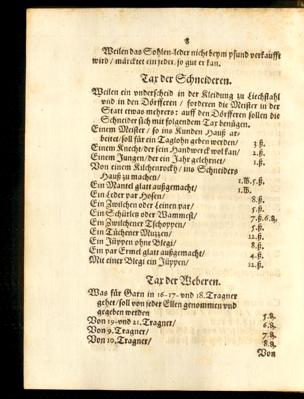 8
Weilen das Sohlen-leder nicht beym pfund verkaufft
wird / märcktet ein jeder, so gut er kan.
Tax der Schneideren.
Weilen ein underscheid in der Kleidung zu Liechstahl
und in den Dörfferen / forderen die Meister in der
Statt etwas mehrers: auff den Dörfferen sollen die
Schneider sich mit folgendem Tax benügen.
Einem Meister / so ins Kunden Hauß ar-
beitet / soll für ein Taglohn geben werden / 3 ß.
Einem Knecht / der sein Handwerck wol kan / 2. ß.
Einem Jungen / der ein Jahr gelehrnet / 1. ß.
Von einem Kilchenrock / ins Schneiders
Hauß zu machen / 1. lb. 5. ß.
Ein Mantel glatt außgemacht / 1. lb.
Ein Leder par Hosen / 8. ß.
Ein Zwilchen oder Leinen par / 5. ß.
Ein Schürlen oder Wammest / 7. ß. 6. ₰.
Ein Zwilchener Tschoppen / 5. ß.
Ein Tüchener Mutzen / 12. ß.
Ein Jüppen ohne Blegi / 8. ß.
Ein par Ermel glatt außgemacht / 4. ß.
Mit einer Blegi ein Jüppen / 12. ß.
Tax der Weberen.
Was für Garn in 16- 17- und 18. Tragner
gehet / soll von jeder Ellen genommen und
gegeben werden 5. ₰.
Von 19- und 21. Tragner / 6. ₰.
Von 9. Tragner / 7. ₰.
Von 10. Tragner / 8. ₰.
Von